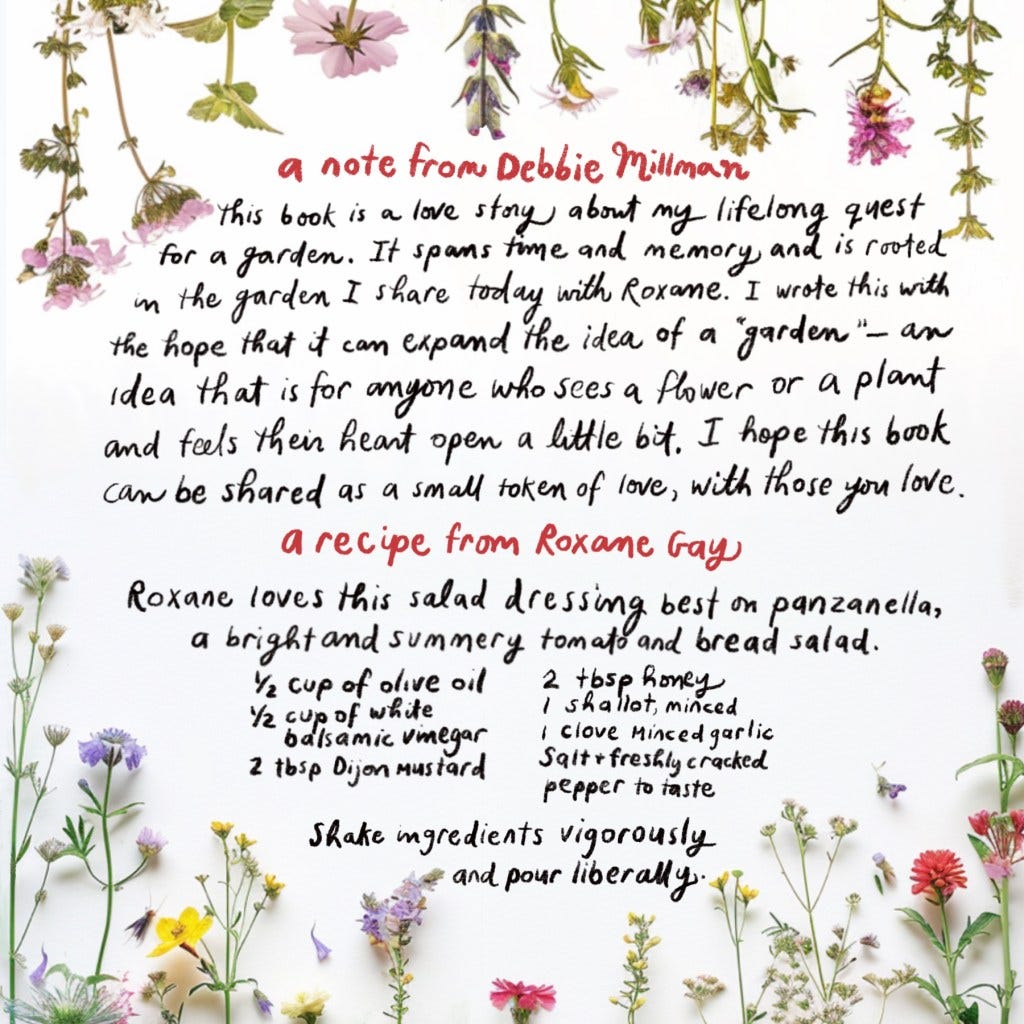 a note from Debbie Millman
This book is a love story about my lifelong quest
for a garden. It spans time and memory and is rooted
in the garden I share today with Roxane. I wrote this with
the hope that it can expand the idea of a "garden" — an
idea that is for anyone who sees a flower or a plant
and feels their heart open a little bit. I hope this book
can be shared as a small token of love, with those you love.
a recipe from Roxane Gay
Roxane loves this salad dressing best on panzanella,
a bright and summery tomato and bread salad.
½ cup of olive oil
½ cup of white
balsamic vinegar
2 tbsp Dijon mustard
2 tbsp honey
1 shallot, minced
1 clove minced garlic
Salt + freshly cracked
pepper to taste
Shake ingredients vigorously
and pour liberally.